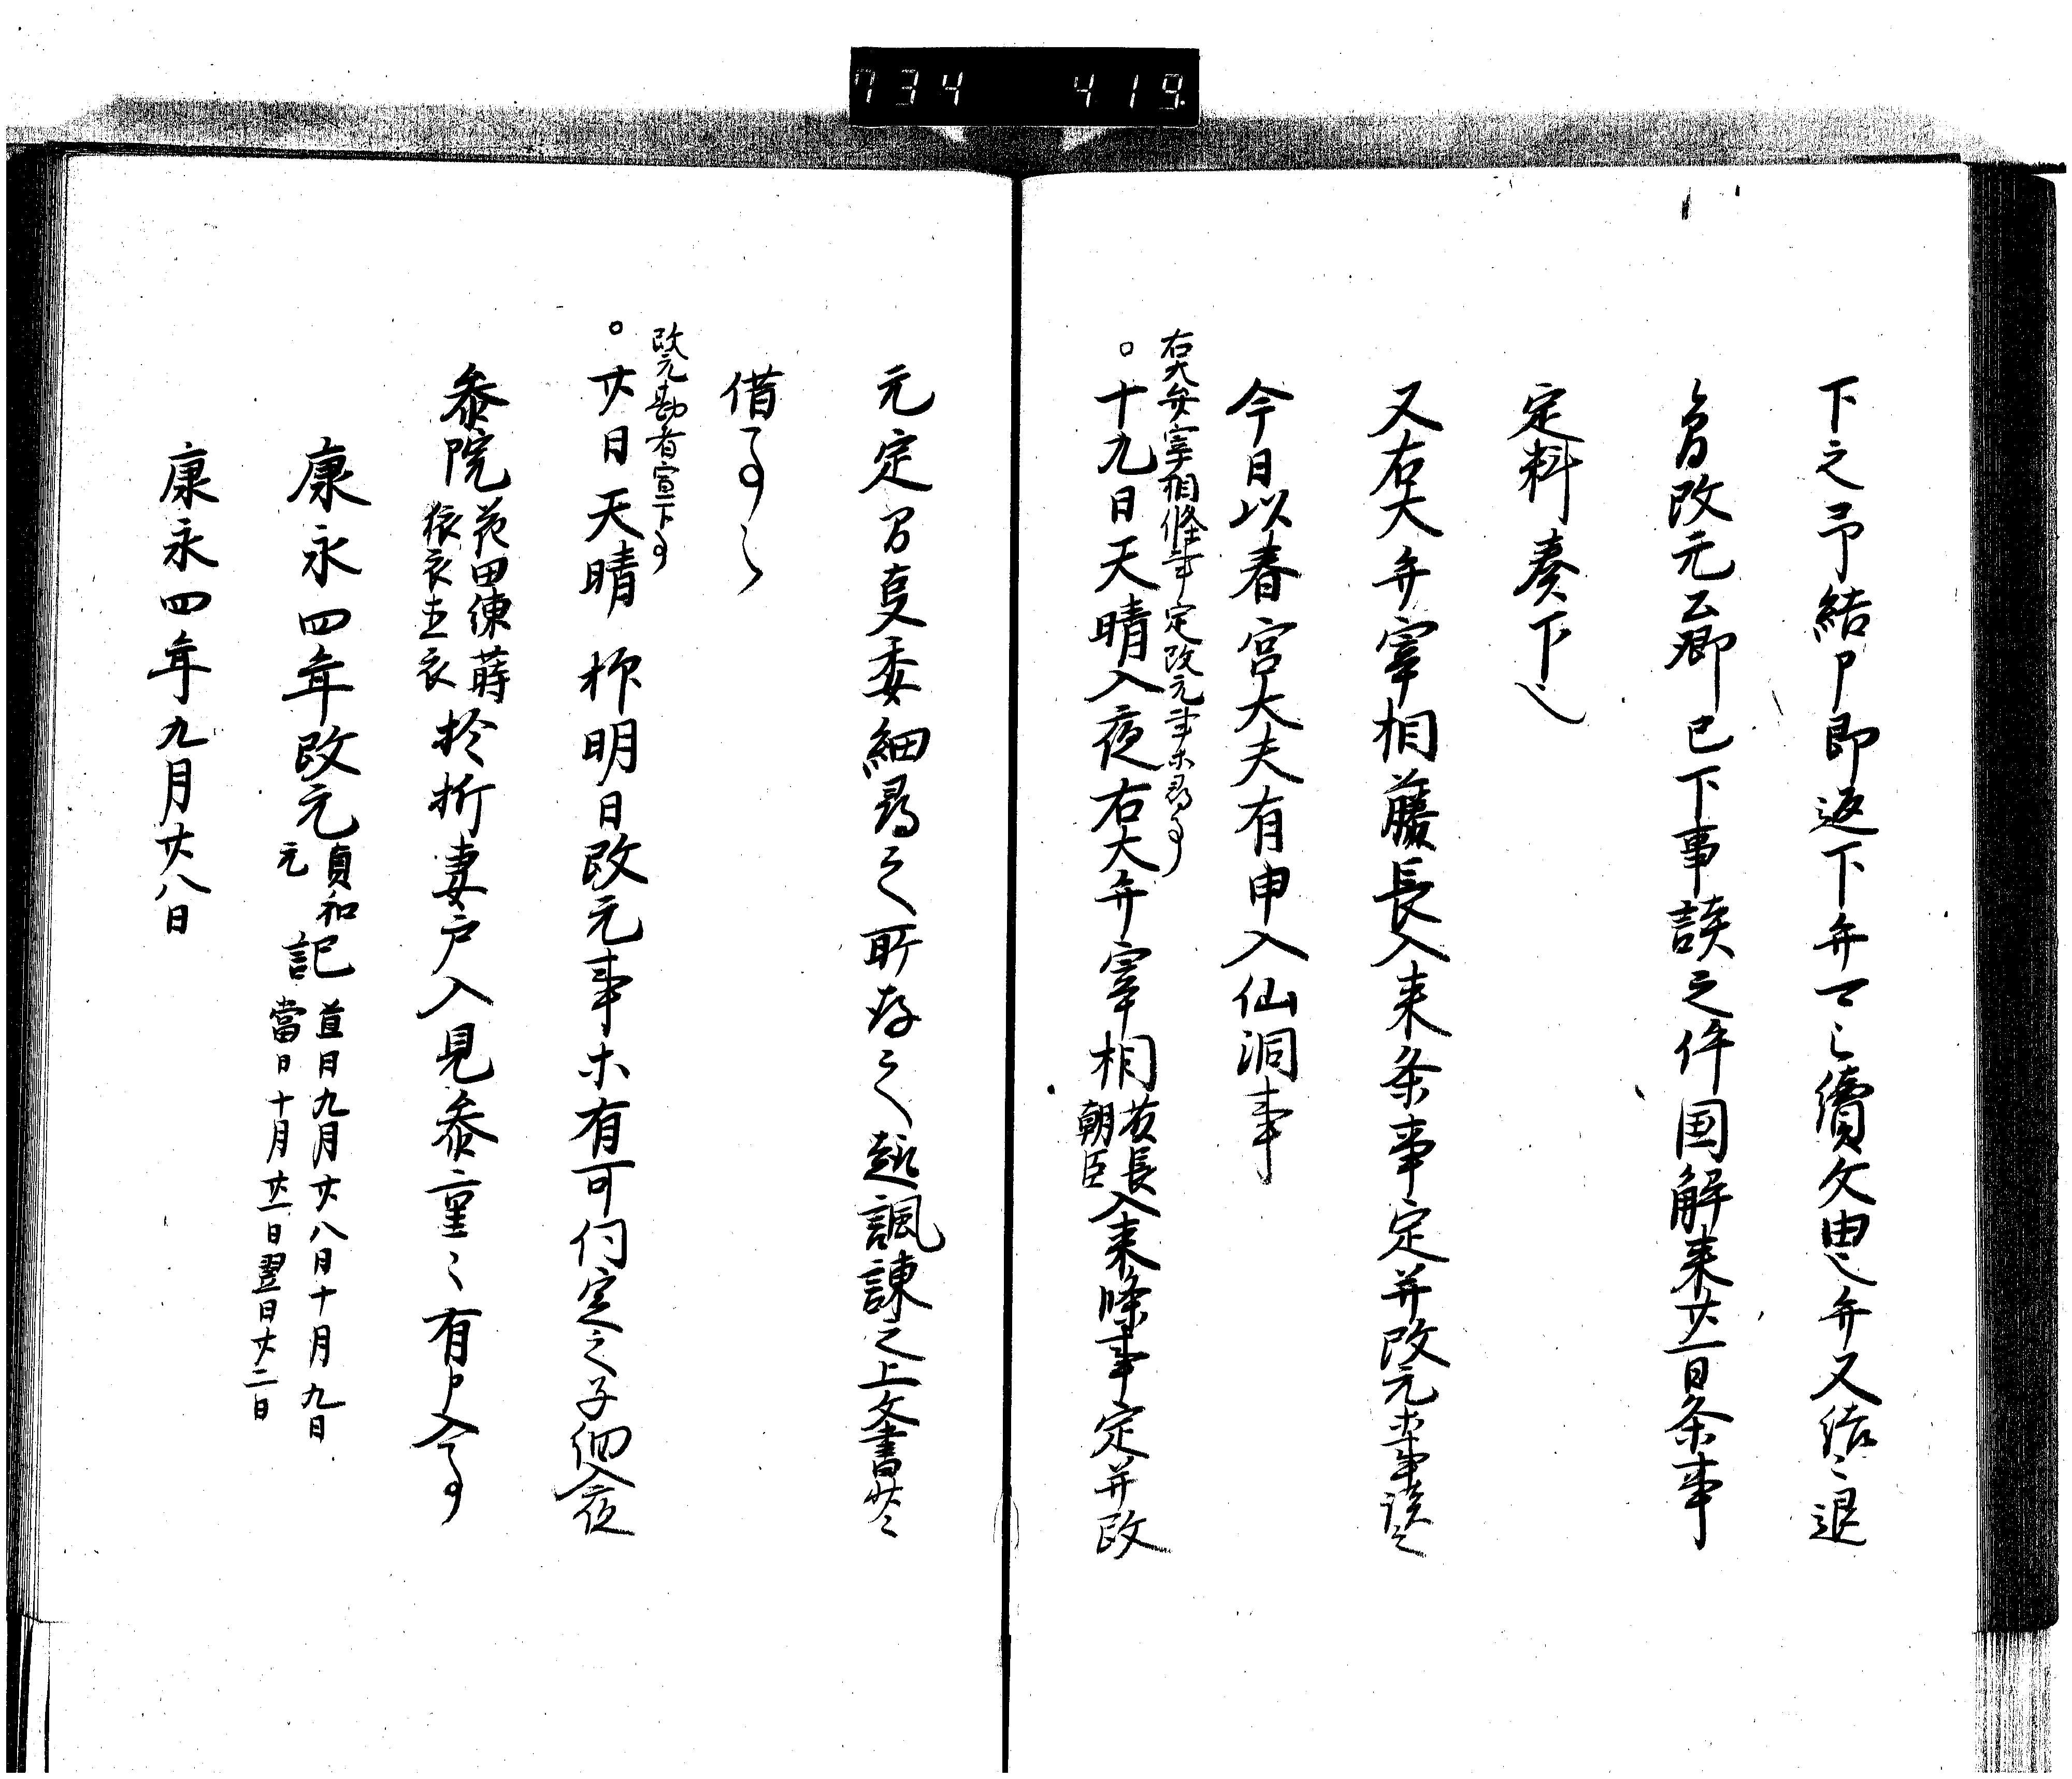 734 419
下之予結申即返下弁〻〻續文申〻弁又結〻退
改元公卿已下事談之件国解来廿一日条事
定料奏下〻
又右大弁宰相藤長入来条事定并改元事等談之
今日以春宮大夫有申入仙洞事
右大弁宰相條事定改元事等尋事
○十九日天晴入夜右大弁宰相藤長朝臣入来條事定并改
元定間事委細尋之所存之趣諷諫之上文書等
借事〻
改元勘者宣下事
○廿日天晴抑明日改元事等有可伺定之子細入夜
参院花田練蒔狩衣直衣於折妻戸入見参重〻有申入事
康永四年改元貞和元記直月九月廿八日十月九日當日十月廿一日翌日廿二日
康永四年九月廿八日